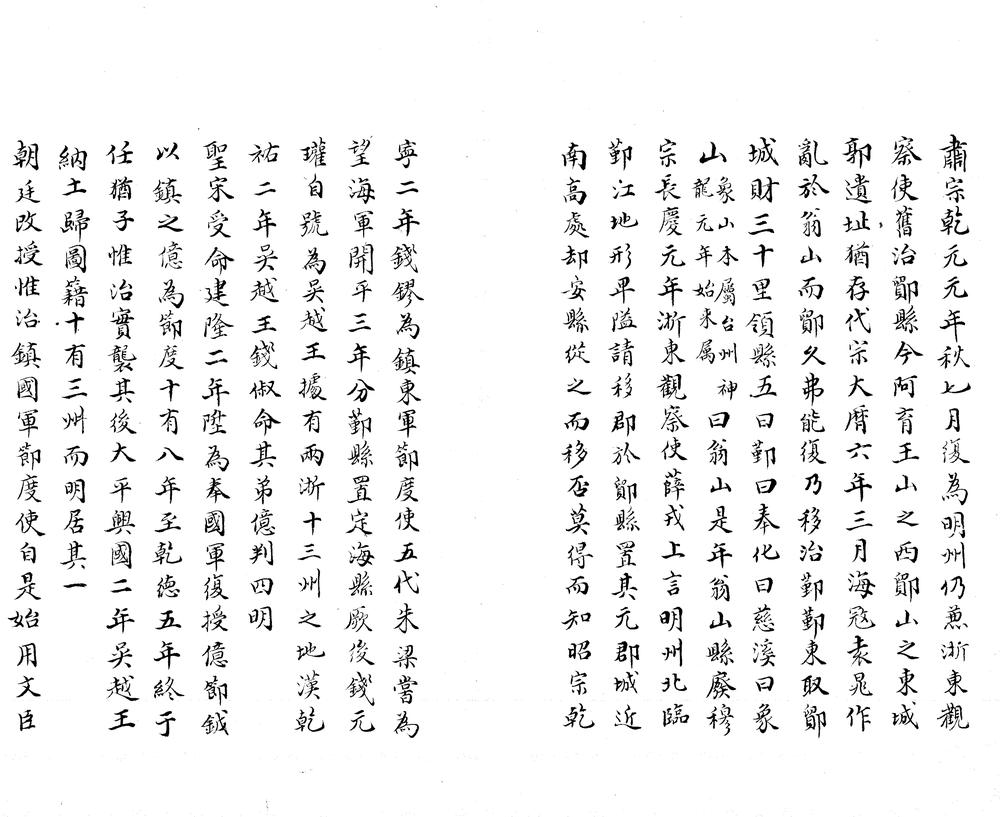 肅宗乾元元年秋七月復為明州仍兼浙東觀
察使舊治鄮縣今阿育王山之西鄮山之東城
郭遺址猶存代宗大曆六年三月海寇袁晁作
亂於翁山而鄮久弗能復乃移治鄞鄞東取鄮
城財三十里領縣五曰鄞曰奉化曰慈溪曰象
山象山本屬台州神龍元年始来属曰翁山是年翁山縣廢穆
宗長慶元年浙東觀察使薛戎上言明州北臨
鄞江地形卑隘請移郡於鄮縣置其元郡城近
南高處却安縣從之而移否莫得而知昭宗乾
寧二年錢鏐為鎮東軍節度使五代朱梁當為
望海軍開平三年分鄞縣置定海縣厥後錢元
瓘自號為吳越王據有兩浙十三州之地漢乾
祐二年吳越王錢俶命其弟億判四明
聖宋受命建隆二年陞為奉國軍復授億節鉞
以鎮之億為節度十有八年至乾徳五年終于
任猶子惟治實襲其後大平興國二年吳越王
納土歸圖籍十有三州而明居其一
朝廷改授惟治鎮國軍節度使自是始用文臣